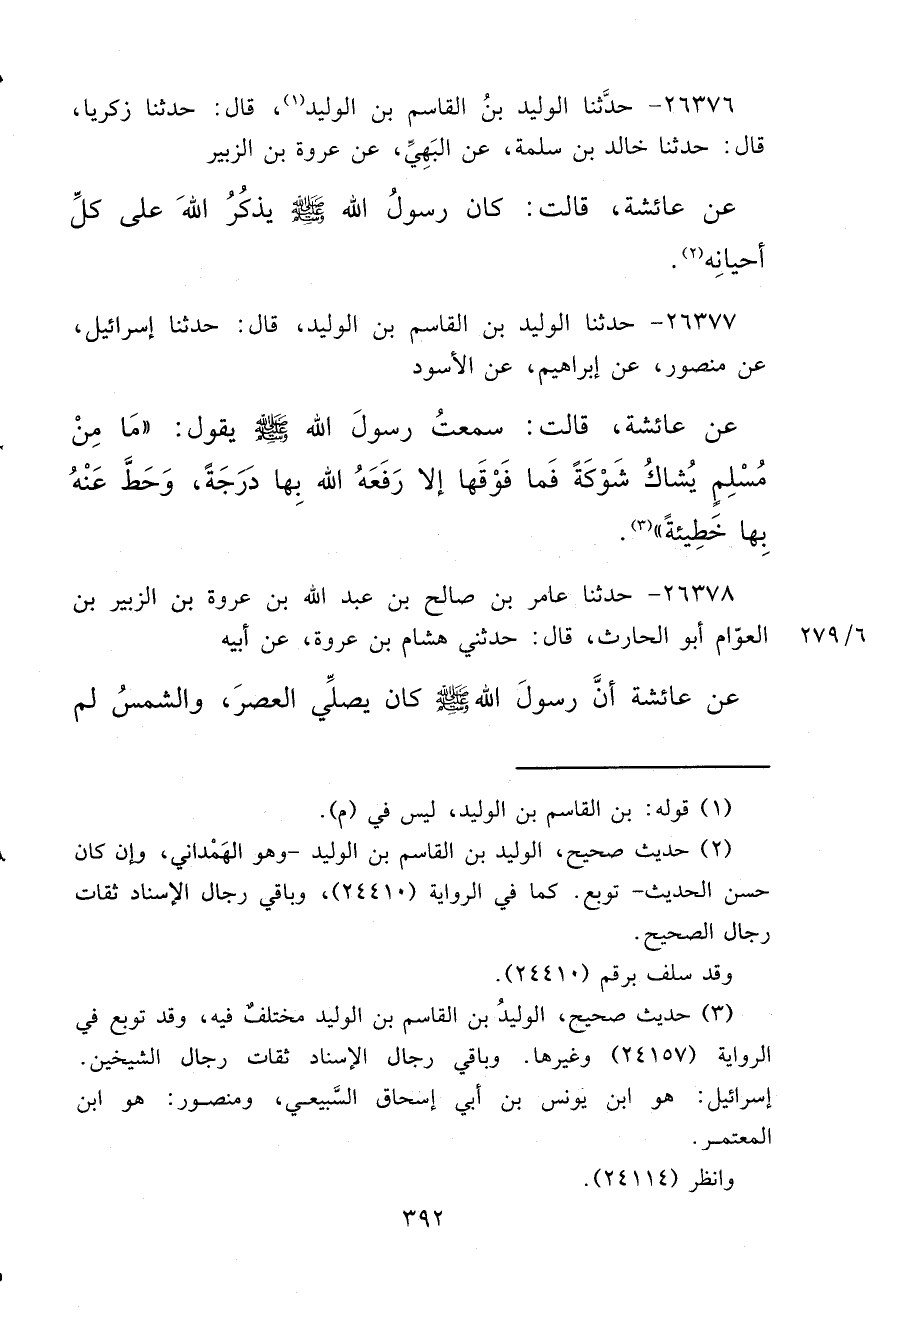 ٢٦٣٧٦- حدَّثنا الوليد بنُ القاسم بن الوليد(١)، قال: حدثنا زكريا،
قال: حدثنا خالد بن سلمة، عن البَهِيِّ، عن عروة بن الزبير
عن عائشة، قالت: كان رسولُ الله ﷺ يذكُرُ اللهَ على كلِّ
أحيانِه(٢).
٢٦٣٧٧- حدثنا الوليد بن القاسم بن الوليد، قال: حدثنا إسرائيل،
عن منصور، عن إبراهيم، عن الأسود
عن عائشة، قالت: سمعتُ رسولَ الله ﷺ يقول: «مَا مِنْ
مُسْلِمٍ يُشاكُ شَوْكَةً فَما فَوْقَها إلا رَفَعَهُ الله بِها دَرَجَةً، وَحَطَّ عَنْهُ
بِها خَطِيئةً»(٣).
٢٦٣٧٨- حدثنا عامر بن صالح بن عبد الله بن عروة بن الزبير بن
العوّام أبو الحارث، قال: حدثني هشام بن عروة، عن أبيه
٢٧٩/٦
عن عائشة أنَّ رسولَ الله ﷺ كان يصلِّي العصرَ، والشمسُ لم
(١) قوله: بن القاسم بن الوليد، ليس في (م).
(٢) حديث صحيح، الوليد بن القاسم بن الوليد -وهو الهَمْداني، وإن كان
حسن الحديث- توبع. كما في الرواية (٢٤٤١٠)، وباقي رجال الإسناد ثقات
رجال الصحيح.
وقد سلف برقم (٢٤٤١٠).
(٣) حديث صحيح، الوليدُ بن القاسم بن الوليد مختلفٌ فيه، وقد توبع في
الرواية (٢٤١٥٧) وغيرها. وباقي رجال الإسناد ثقات رجال الشيخين.
إسرائيل: هو ابن يونس بن أبي إسحاق السَّبيعي، ومنصور: هو ابن
المعتمر.
وانظر (٢٤١١٤).
٣٩٢